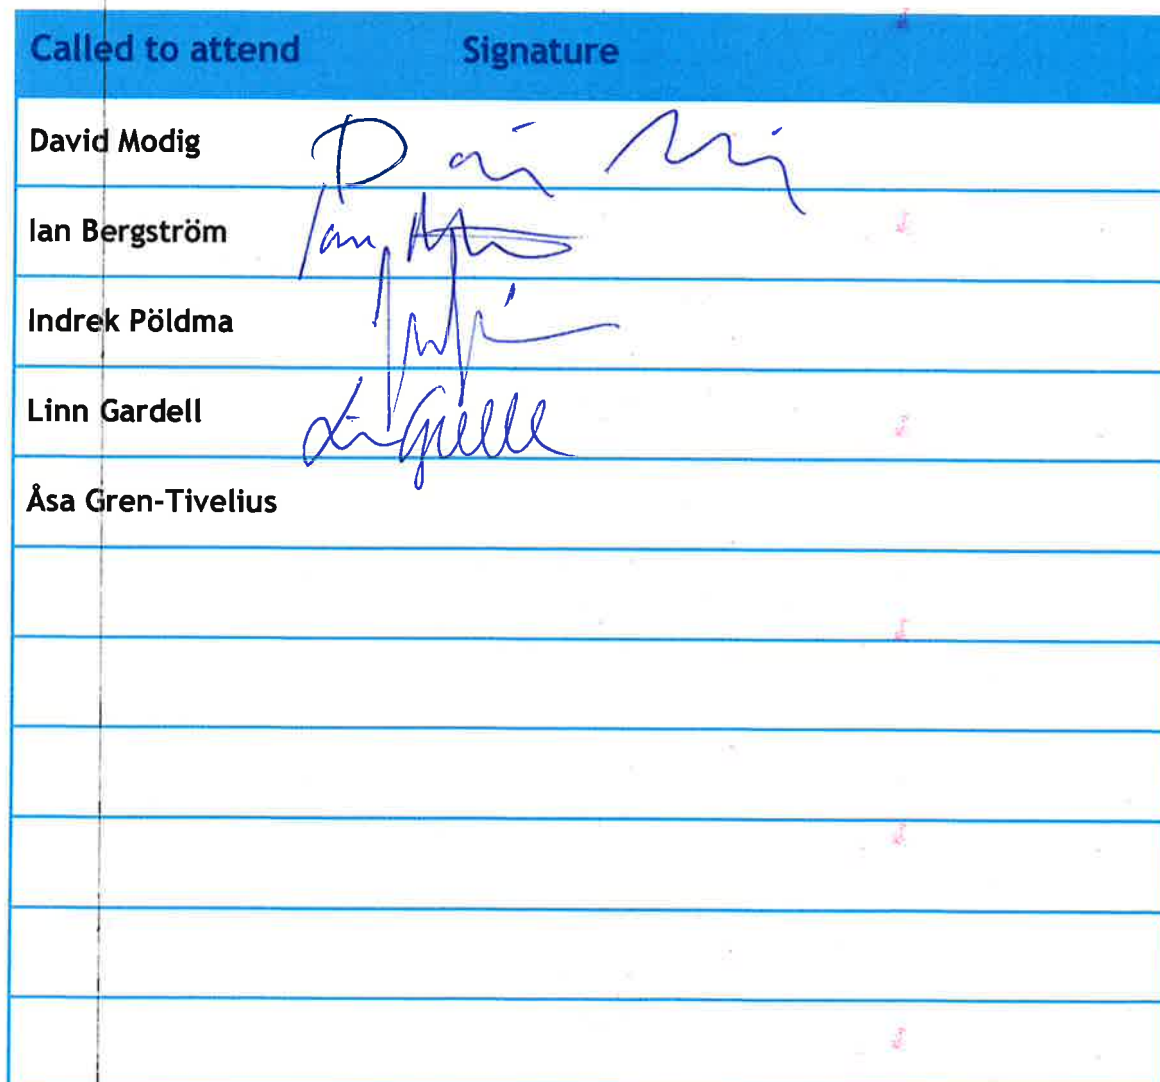 Called to attend Signature
David Modig
Ian Bergström Ian
Indrek Pöldma
Linn Gardell
Åsa Gren-Tivelius